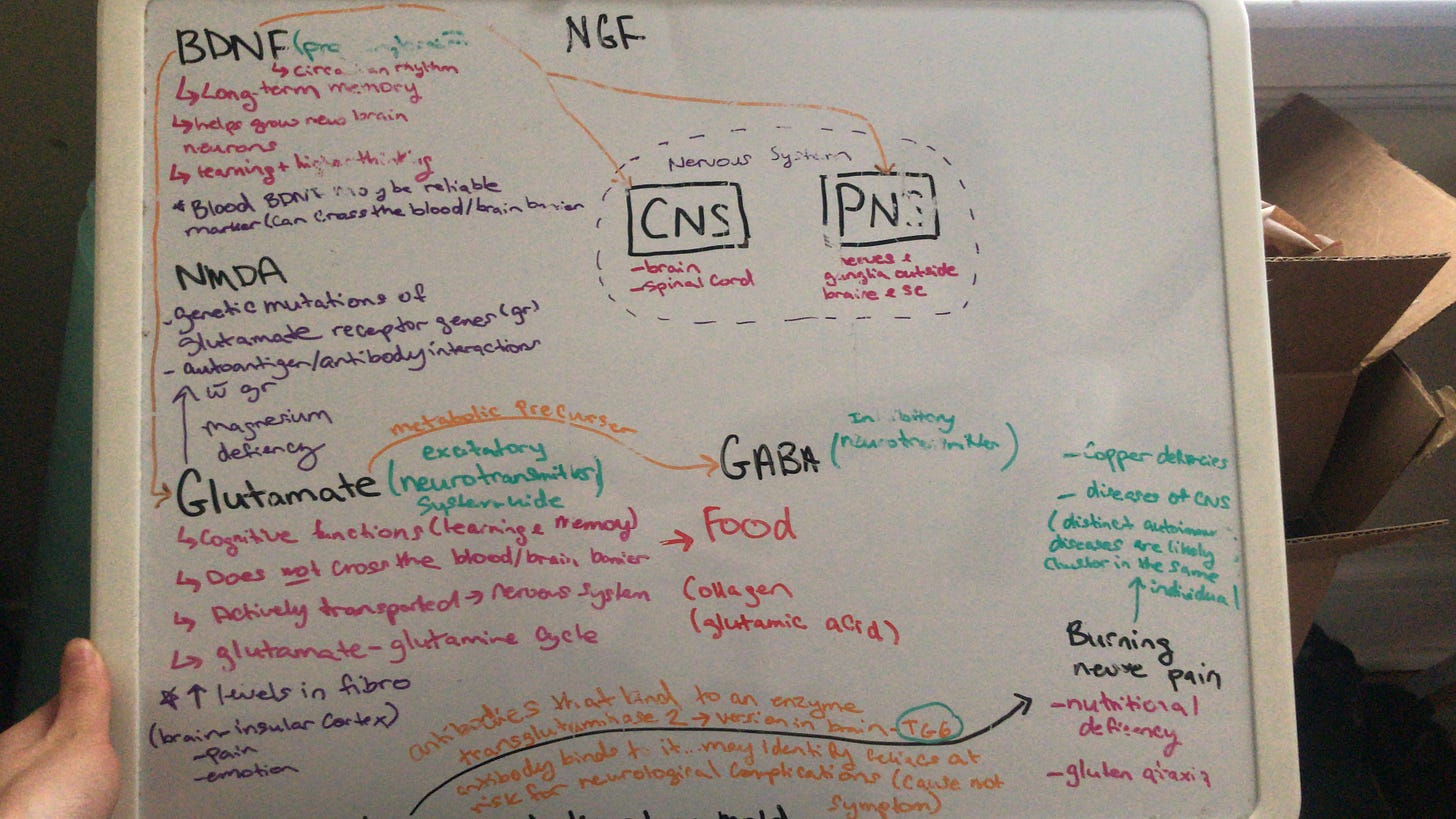 BDNF
↳ rhythm
↳ Long-term memory
↳ helps grow new brain
neurons
↳ learning + higher thinking
* Blood BDNF may be reliable
marker (can cross the blood/brain barrier
NGF
Nervous System
CNS
- brain
- spinal cord
PNS
nerves &
ganglia outside
braine & SC
NMDA
- genetic mutations of
glutamate receptor genes (gr)
- autoantigen/antibody interactions
w̄ gr
magnesium
defiency
metabolic precurser
Glutamate (neurotransmitter)
excitatory
system-wide
↳ Cognitive functions (learning & memory)
↳ Does not cross the blood/brain barrier
↳ Actively transported → nervous system
↳ glutamate-glutamine cycle
* ↑ levels in fibro
(brain-insular cortex)
- pain
- emotion
GABA (neurotransmitter)
Inhibitory
→ Food
Collagen
(glutamic acid)
- Copper deficiencies
- diseases of CNS
(distinct autoimmune
diseases are likely
cluster in the same
individual
Burning
nerve pain
- nutritional
defiency
- gluten ataxia
antibodies that bind to an enzyme
transglutaminase 2 → version in brain - TG6
antibody binds to it... may identify celiacs at
risk for neurological complications (cause not
symptom)